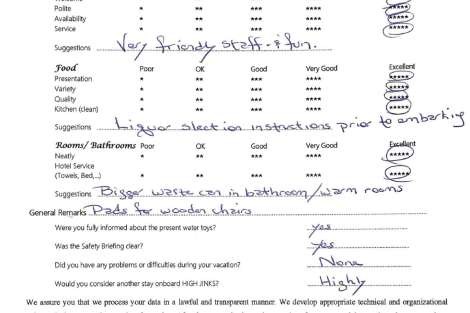 Polite * ** *** **** *****
Availability * ** *** **** *****
Service * ** *** **** *****
Suggestions Very friendly staff & fun.
Food Poor OK Good Very Good Excellent
Presentation * ** *** **** *****
Variety * ** *** **** *****
Quality * ** *** **** *****
Kitchen (clean) * ** *** **** *****
Suggestions Liquor slection instructions prior to embarking
Rooms/ Bathrooms Poor OK Good Very Good Excellent
Neatly * ** *** **** *****
Hotel Service
(Towels, Bed,...) * ** *** ****
Suggestions Bigger waste can in bathroom/warm rooms
General Remarks Pads for wooden chairs
Were you fully informed about the present water toys? yes
Was the Safety Briefing clear? yes
Did you have any problems or difficulties during your vacation? None
Would you consider another stay onboard HIGH JINKS? Highly
We assure you that we process your data in a lawful and transparent manner. We develop appropriate technical and organizational